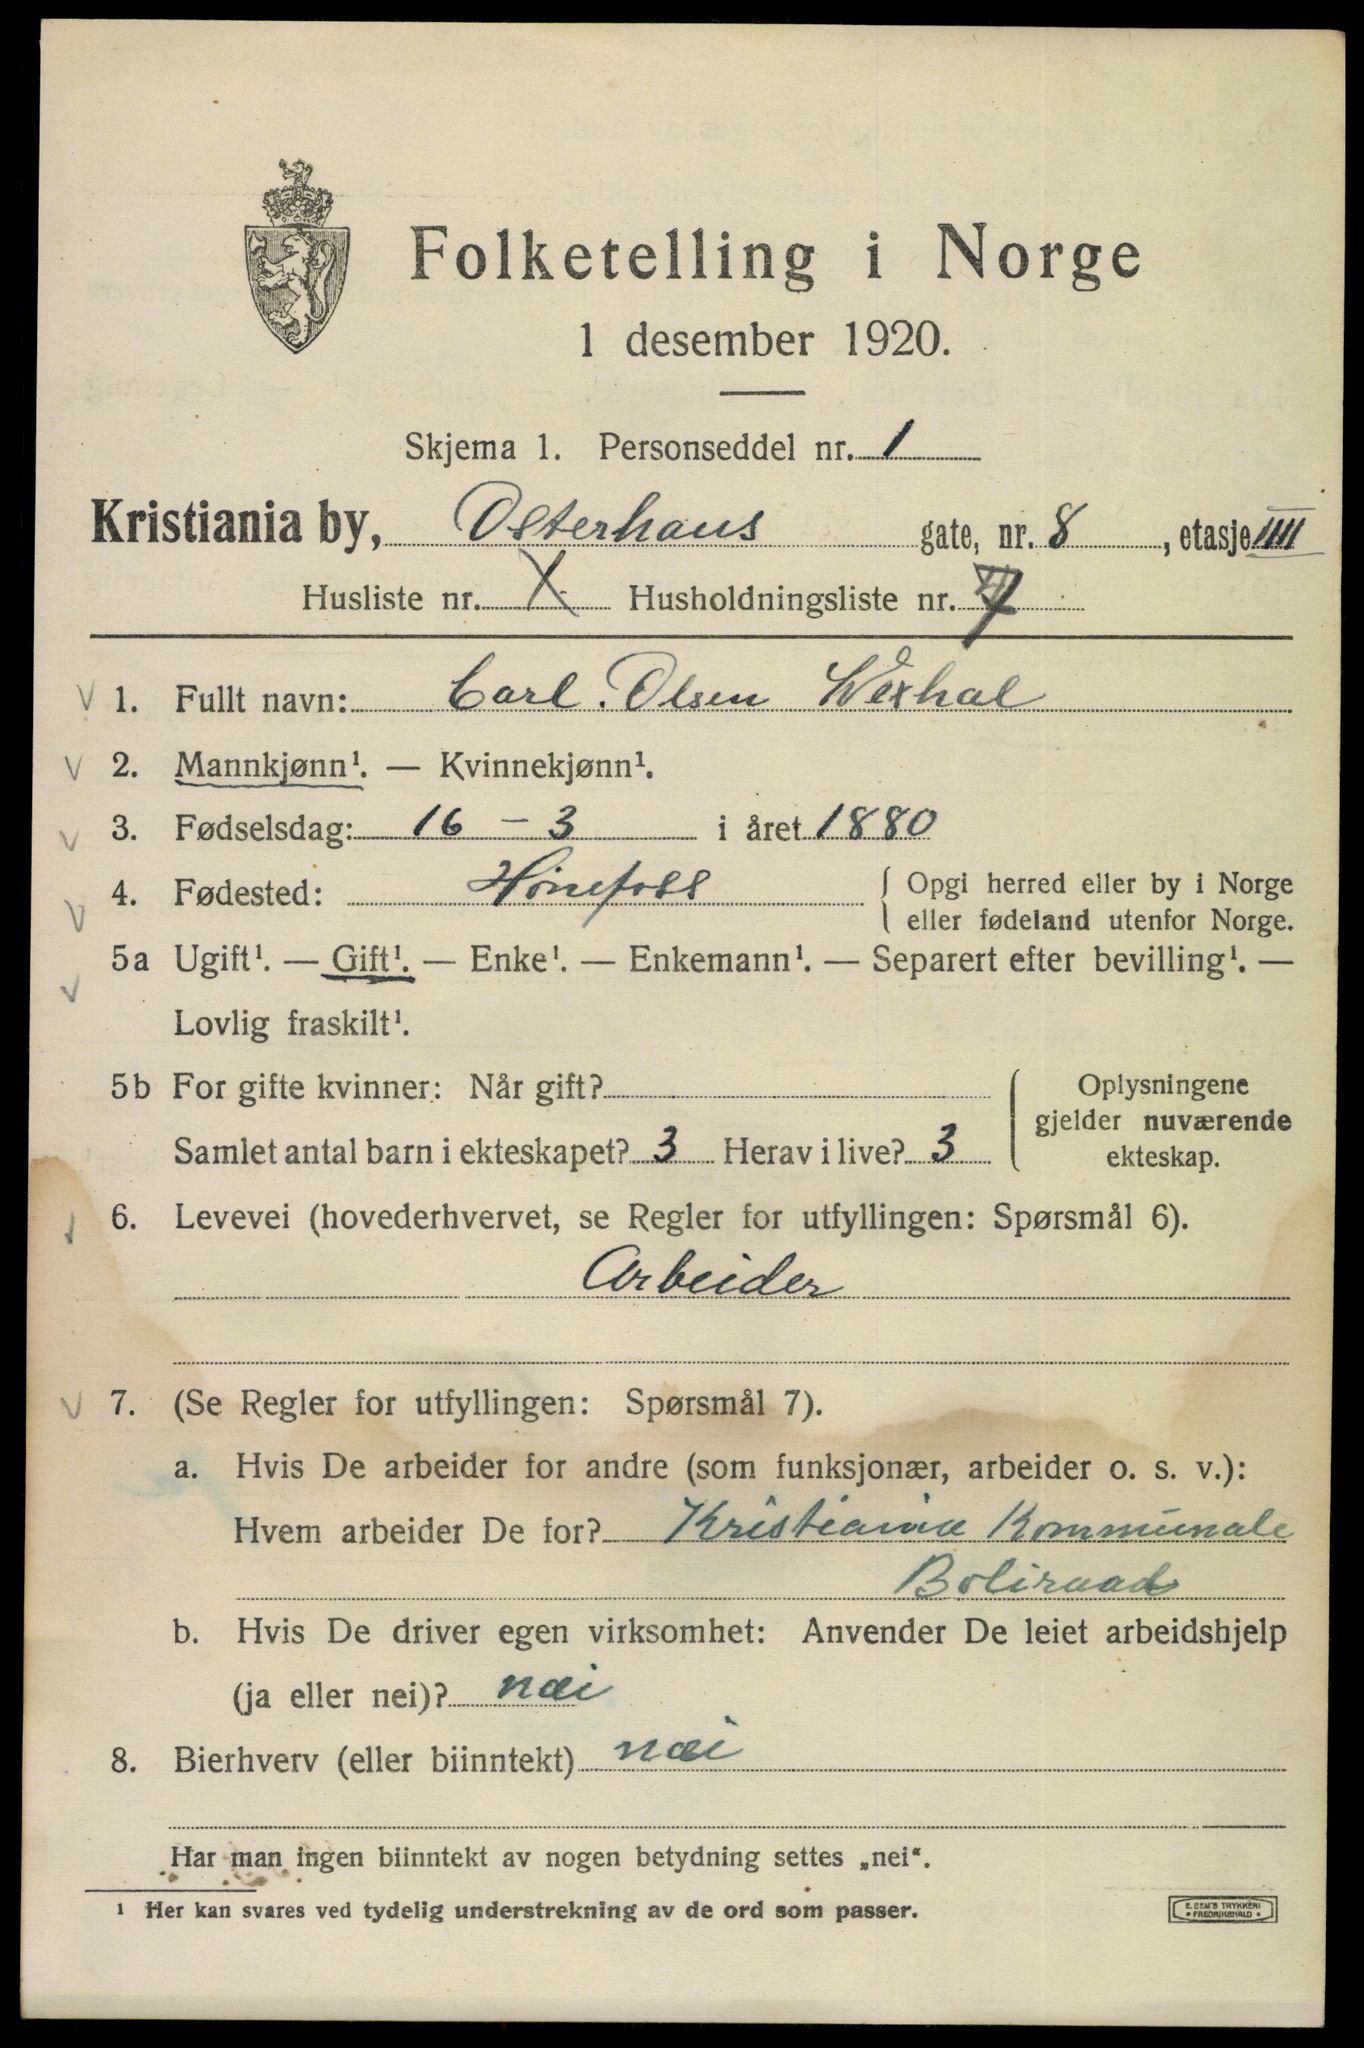 Folketelling i Norge
1 desember 1920.
Skjema 1. Personseddel nr. 1
Kristiania by, Osterhaus gate, nr. 8, etasje IIII
Husliste nr. X Husholdningsliste nr. 7
1. Fullt navn: Carl. Olsen
2. Mannkjønn¹. — Kvinnekjønn¹.
3. Fødselsdag: 16 – 3 i året 1880
4. Fødested: Hönefoss { Opgi herred eller by i Norge
eller fødeland utenfor Norge.
5a Ugift¹. — Gift¹. — Enke¹. — Enkemann¹. — Separert efter bevilling¹. —
Lovlig fraskilt¹.
5b For gifte kvinner: Når gift?
Samlet antal barn i ekteskapet? 3 Herav i live? 3
Oplysningene
gjelder nuværende
ekteskap.
6. Levevei (hovederhvervet, se Regler for utfyllingen: Spørsmål 6).
Arbeider
7. (Se Regler for utfyllingen: Spørsmål 7).
a. Hvis De arbeider for andre (som funksjonær, arbeider o. s. v.):
Hvem arbeider De for? Kristiania Kommunale
Boliraad
b. Hvis De driver egen virksomhet: Anvender De leiet arbeidshjelp
(ja eller nei)? næi
8. Bierhverv (eller biinntekt) næi
Har man ingen biinntekt av nogen betydning settes „nei“.
¹ Her kan svares ved tydelig understrekning av de ord som passer.
E. SEM'S TRYKKERI
FREDRIKSHALD